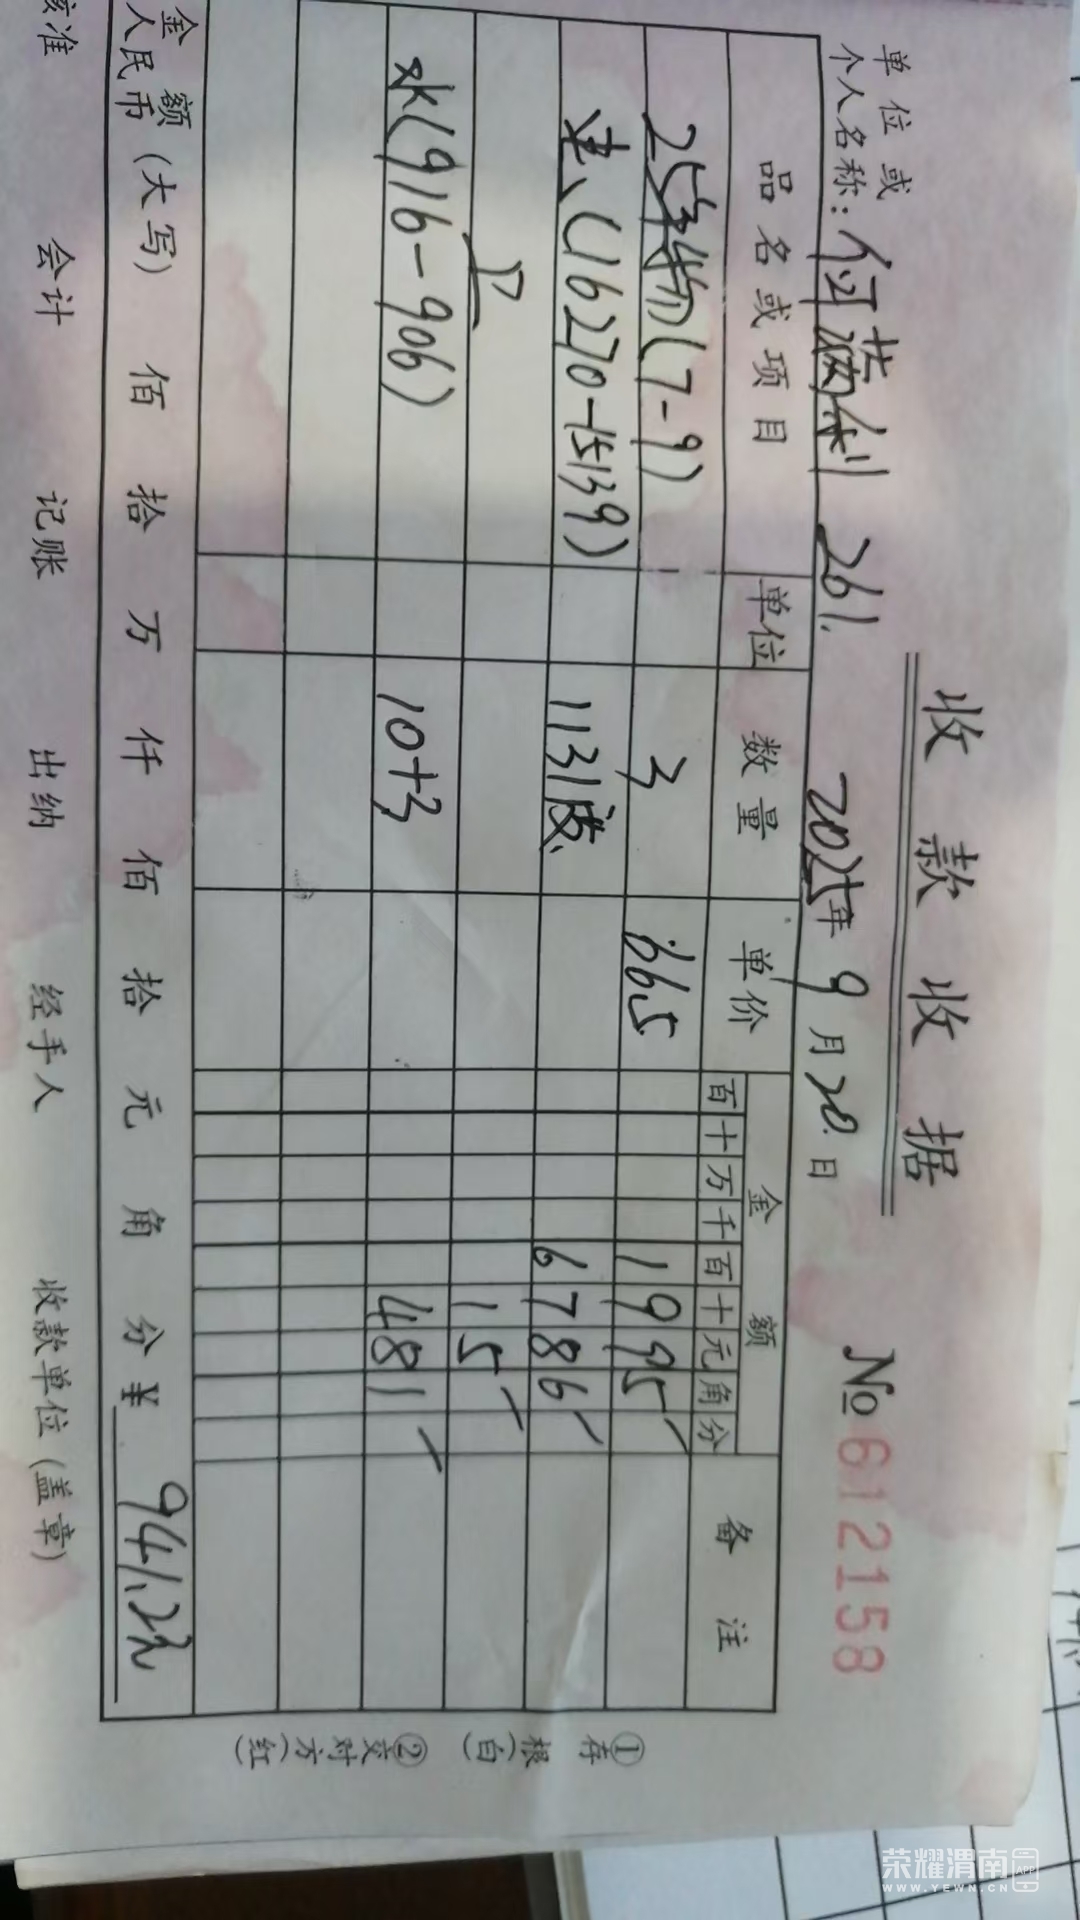 收款收据
№ 6112158
单位或个人名称: 261. 2025年9月20.日
品名或项目 单位 数量 单价 金额 备注
百十万千百十元角分
25年物(7-9) 3 66.5 1995
(16270-15139) 1131度 6786
卫 15
水(916-906) 10+3 481
金额(大写)人民币 佰 拾 万 仟 佰 拾 元 角 分 ¥ 941.2元
核准 会计 记账 出纳 经手人 收款单位(盖章)
①存根(白)
②交对方(红)
荣耀渭南APP
WWW.YEWN.CN